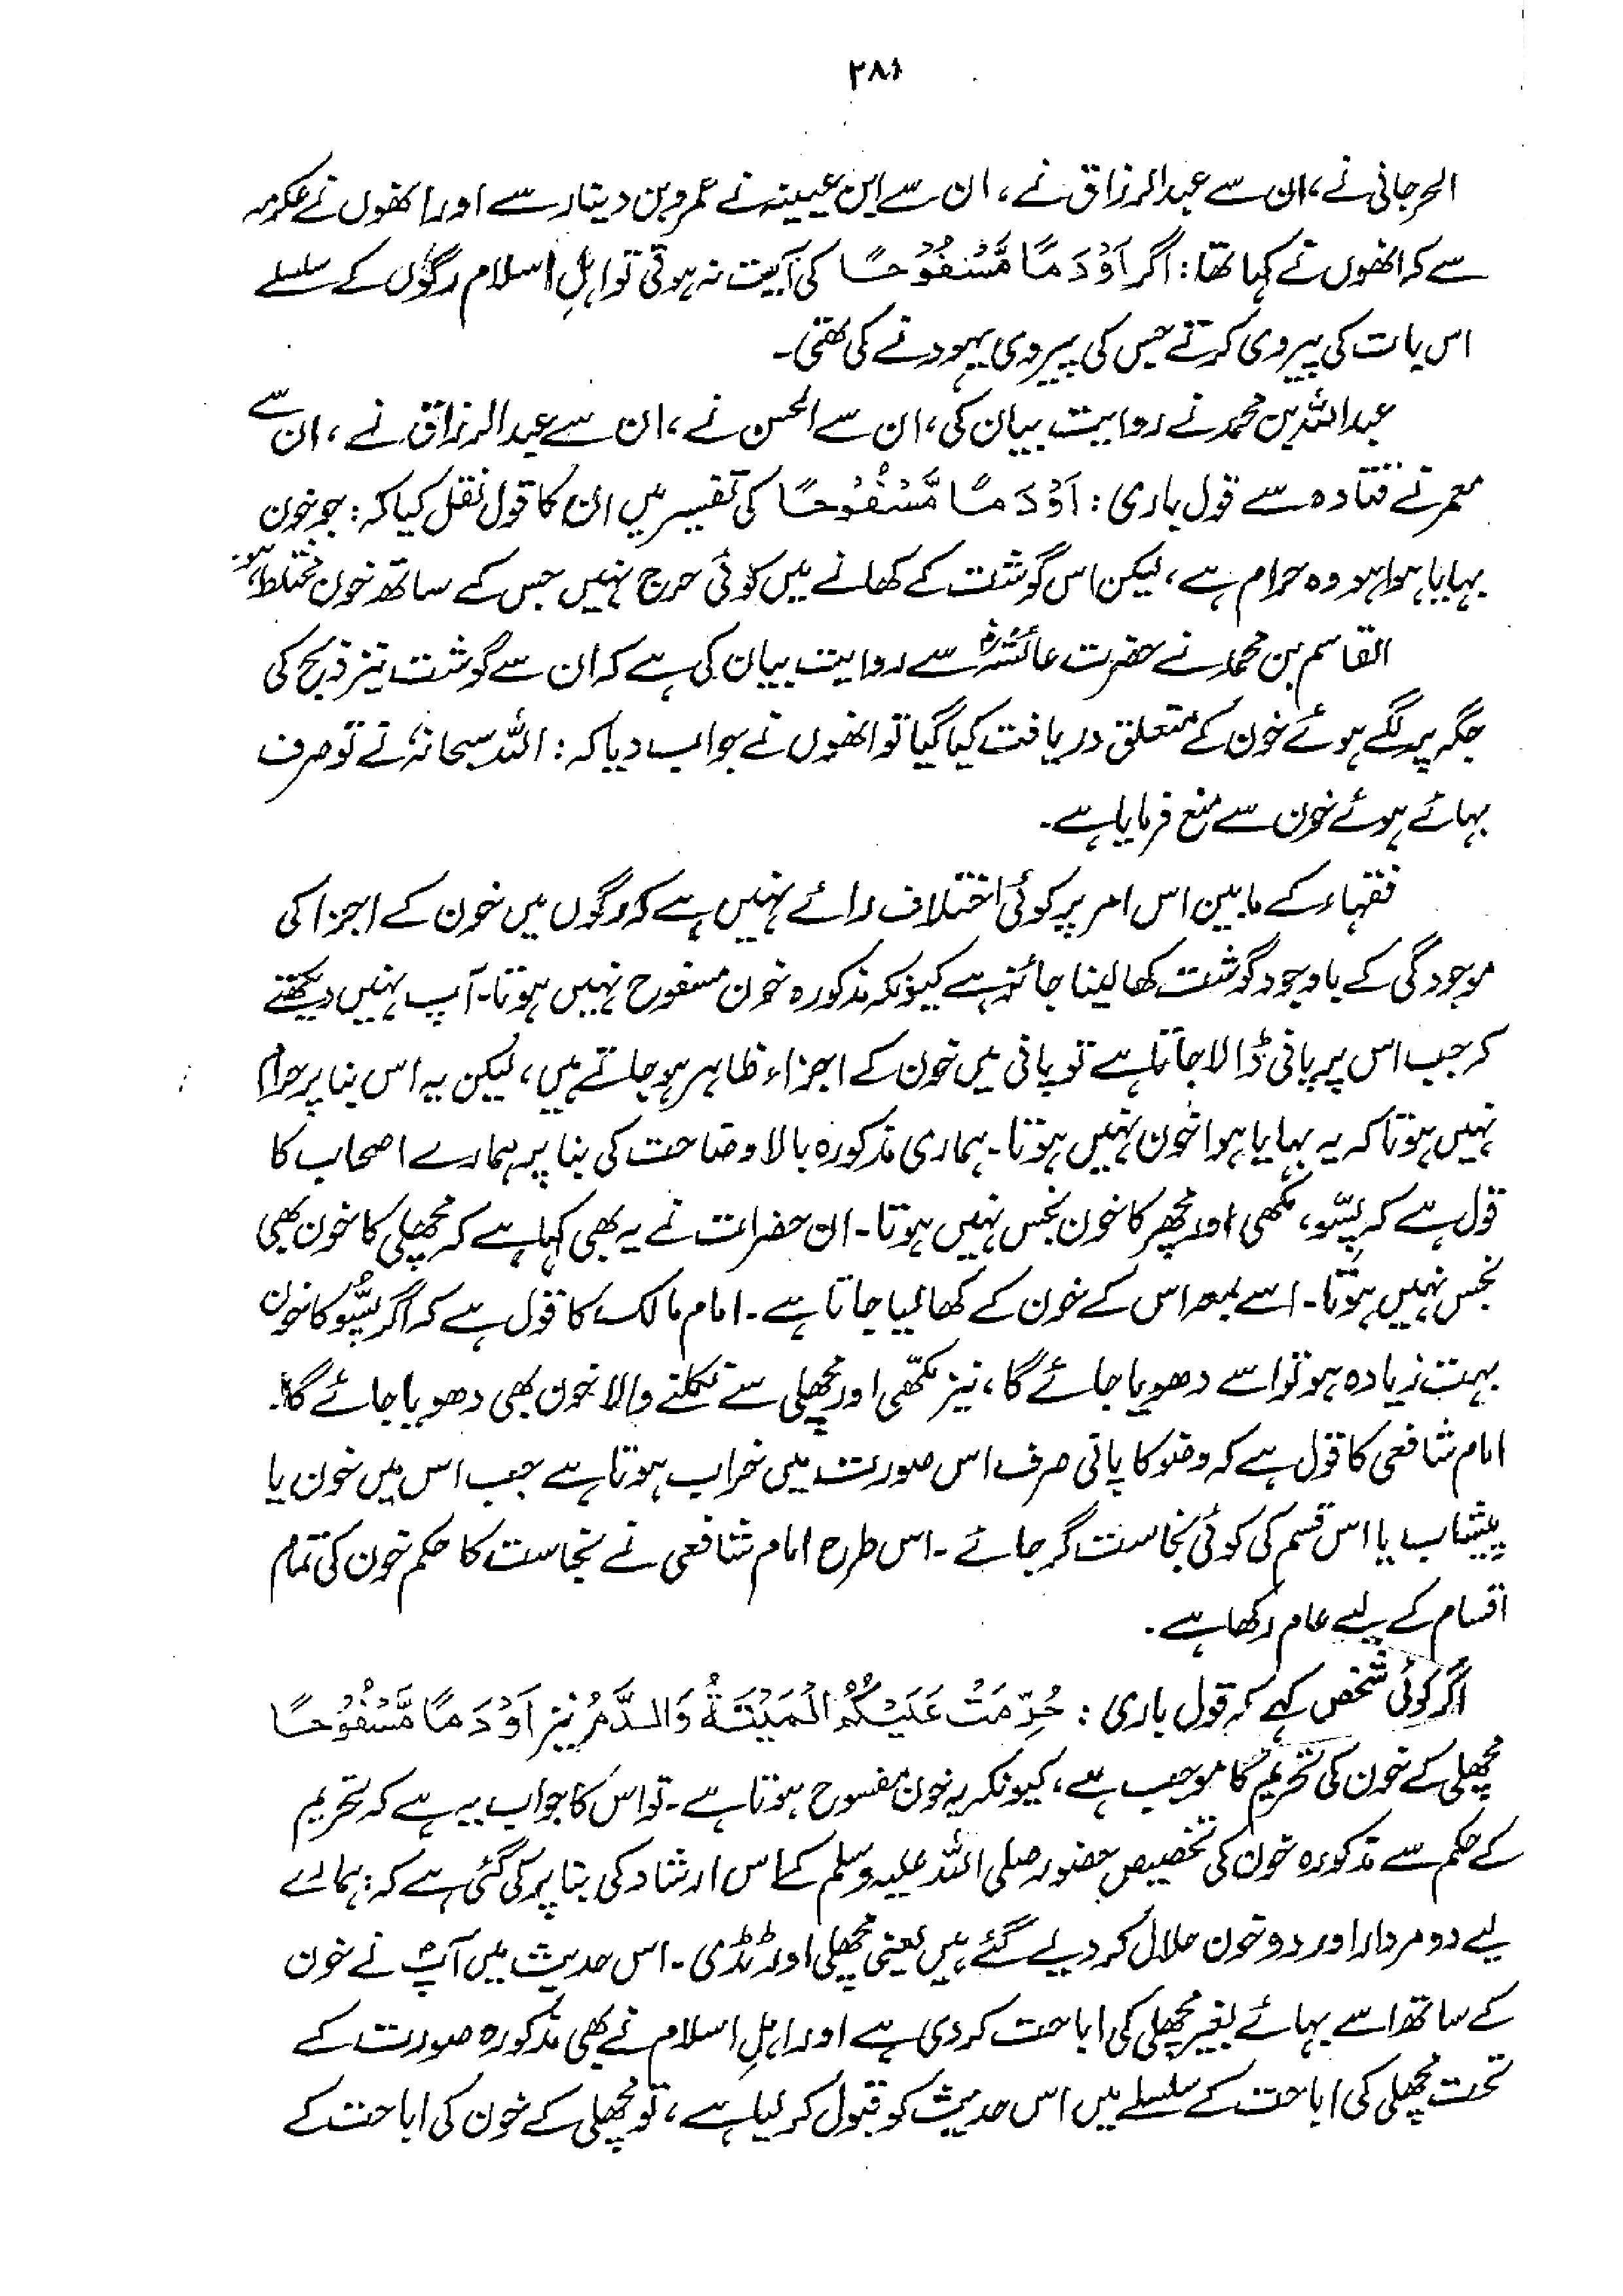 ۲۸۱
الجرجانی نے، ان سے عبدالرزاق نے، ان سے ابن عیینہ نے عمرو بن دینار سے اور انھوں نے عکرمہ
سے کہ انھوں نے کہا تھا: اگر اَوْ دَمًا مَّسْفُوْحًا کی آیت نہ ہوتی تو اہلِ اسلام رگوں کے سلسلے
اس بات کی پیروی کرتے جس کی پیروی یہود نے کی تھی۔
عبداللہ بن محمد نے روایت بیان کی، ان سے الحسن نے، ان سے عبدالرزاق نے، ان سے
معمر نے قتادہ سے قول باری: اَوْ دَمًا مَّسْفُوْحًا کی تفسیر میں ان کا قول نقل کیا کہ: جو خون
بہایا ہوا ہو وہ حرام ہے، لیکن اس گوشت کے کھانے میں کوئی حرج نہیں جس کے ساتھ خون مختلط ہو۔
القاسم بن محمد نے حضرت عائشہؓ سے روایت بیان کی ہے کہ ان سے گوشت نیز ذبح کی
جگہ پر لگے ہوئے خون کے متعلق دریافت کیا گیا تو انھوں نے جواب دیا کہ: اللہ سبحانہٗ نے تو صرف
بہائے ہوئے خون سے منع فرمایا ہے۔
فقہاء کے مابین اس امر پر کوئی اختلاف رائے نہیں ہے کہ رگوں میں خون کے اجزا کی
موجودگی کے باوجود گوشت کھا لینا جائز ہے کیونکہ مذکورہ خون مسفوح نہیں ہوتا۔ آپ نہیں دیکھتے
کہ جب اس پر پانی ڈالا جاتا ہے تو پانی میں خون کے اجزاء ظاہر ہو جاتے ہیں، لیکن یہ اس بنا پر حرام
نہیں ہوتا کہ یہ بہایا ہوا خون نہیں ہوتا۔ ہماری مذکورہ بالا وضاحت کی بنا پر ہمارے اصحاب کا
قول ہے کہ پسّو، مکھی اور مچھر کا خون نجس نہیں ہوتا۔ ان حضرات نے یہ بھی کہا ہے کہ مچھلی کا خون بھی
نجس نہیں ہوتا۔ اسے بمعہ اس کے خون کے کھا لیا جاتا ہے۔ امام مالک کا قول ہے کہ اگر پسُّو کا خون
بہت زیادہ ہو تو اسے دھویا جائے گا، نیز مکھّی اور مچھلی سے نکلنے والا خون بھی دھویا جائے گا۔
امام شافعی کا قول ہے کہ وضو کا پانی صرف اس صورت میں خراب ہوتا ہے جب اس میں خون یا
پیشاب یا اس قسم کی کوئی نجاست گر جائے۔ اس طرح امام شافعی نے نجاست کا حکم خون کی تمام
اقسام کے لیے عام رکھا ہے۔
اگر کوئی شخص کہے کہ قول باری: حُرِّمَتْ عَلَيْكُمُ الْمَيْتَةُ وَالدَّمُ نیز اَوْ دَمًا مَّسْفُوْحًا
مچھلی کے خون کی تحریم کا موجب ہے، کیونکہ یہ خون مفسوح ہوتا ہے۔ تو اس کا جواب یہ ہے کہ تحریم
کے حکم سے مذکورہ خون کی تخصیص حضور صلی اللہ علیہ وسلم کے اس ارشاد کی بنا پر کی گئی ہے کہ: ہمارے
لیے دو مردار اور دو خون حلال کر دیے گئے ہیں یعنی مچھلی اور ٹڈی۔ اس حدیث میں آپؐ نے خون
کے ساتھ اسے بہائے بغیر مچھلی کی اباحت کر دی ہے اور اہلِ اسلام نے بھی مذکورہ صورت کے
تحت مچھلی کی اباحت کے سلسلے میں اس حدیث کو قبول کر لیا ہے، تو مچھلی کے خون کی اباحت کے